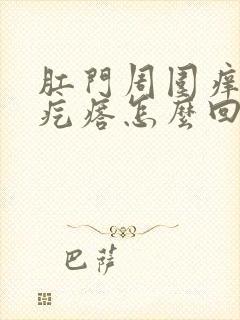 肛門周圍癢
疙瘩怎麼回
巴薩